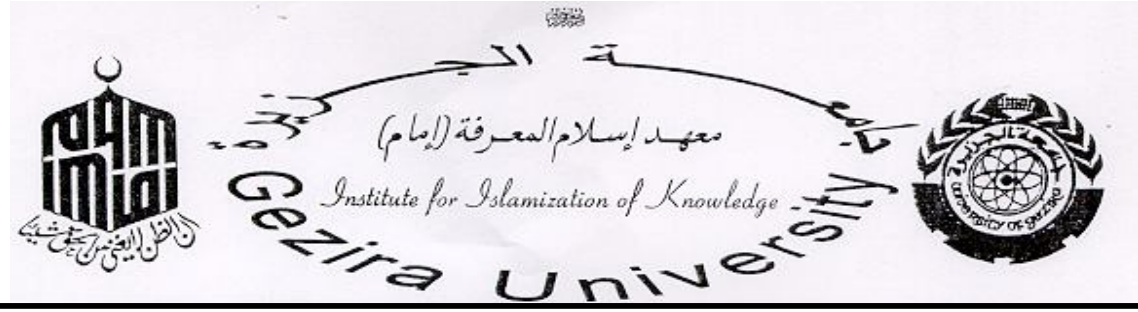 جامعة الجزيرة
معهد إسلام المعرفة (إمام)
Institute for Islamization of Knowledge
Gezira University
إن الظن لا يغني من الحق شيئا
جامعة الجزيرة
UNIVERSITY OF GEZIRA